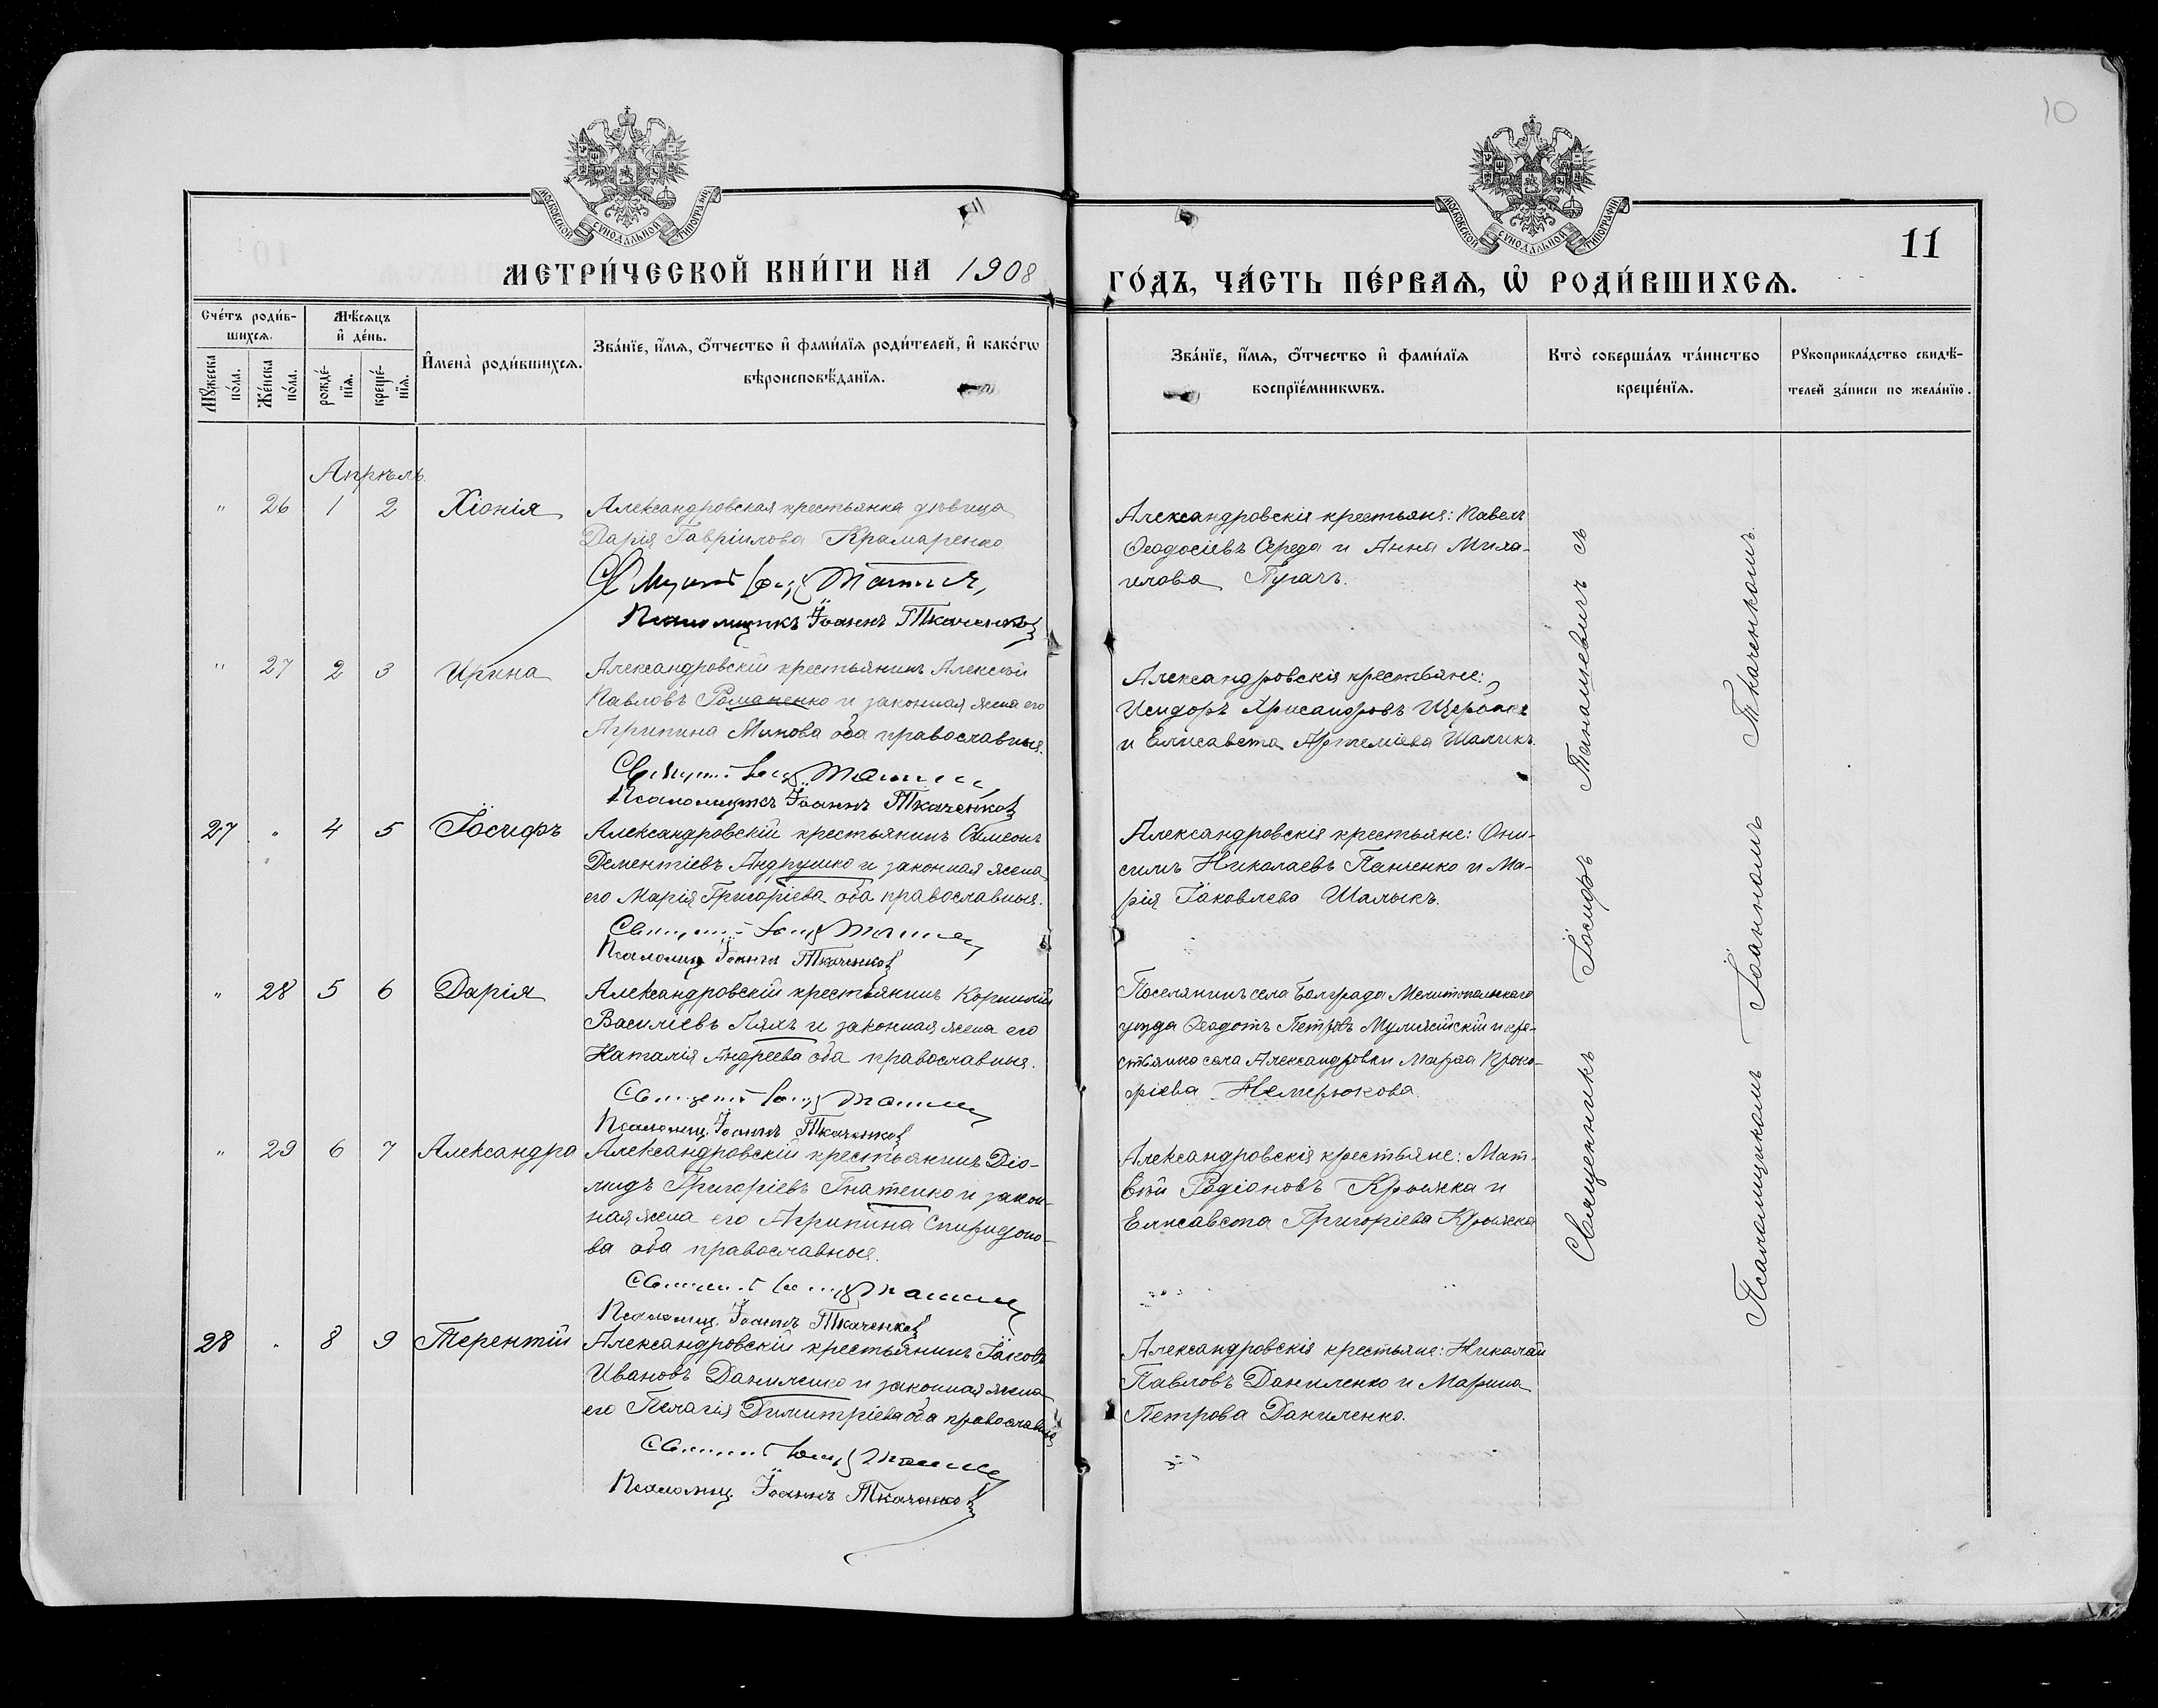 10
МОСКОВСКОЙ СУНОДАЛЬНОЙ ТИПОГРАФІИ
МОСКОВСКОЙ СУНОДАЛЬНОЙ ТИПОГРАФІИ
11
МЕТРИ́ЧЕСКОЙ КНИ́ГИ НА 1908
ГО́ДЪ, ЧА́СТЬ ПЕ́РВАѦ, Ѡ҆ РОДИ́ВШИХСѦ.
Сче́тъ роди́в-
шихсѧ.
Мꙋ́жеска
по́ла.
Же́нска
по́ла.
Мѣ́сѧцъ
и҆ де́нь.
рожде́-
нїѧ.
креще́-
нїѧ.
И҆мена̀ роди́вшихсѧ.
Зва́нїе, и҆́мѧ, ѻ҆́тчество и҆ фами́лїѧ роди́телей, и҆ како́гѡ
вѣроисповѣ́данїѧ.
Зва́нїе, и҆́мѧ, ѻ҆́тчество и҆ фами́лїѧ
воспрїе́мникѡвъ.
Кто̀ соверша́лъ та́инство
креще́нїѧ.
Рꙋкоприкла́дство свидѣ́-
телей за́писи по жела́нїю.
Апрѣль.
" 26 1 2 Хіонія
Александровская крестьянка дѣвица
Дарія Гавріилова Крамаренко
Псаломщикъ Іоаннъ Ткаченко
Александровскія крестьяне: Павелъ
Ѳеодосіевъ Середа и Анна Миха-
илова Пугачъ.
" 27 2 3 Ирина
Александровскій крестьянинъ Алексѣй
Павловъ Романенко и законная жена его
Агрипина обa православныя.
Псаломщикъ Іоаннъ Ткаченко
Александровскія крестьяне:
Исидоръ Хрисанфовъ
и Елисавета Артеміева Шалыкъ.
27 " 4 5 Іосифъ
Александровскій крестьянинъ Симеонъ
Дементіевъ Андрушко и законная жена
его Марія Григоріева оба православныя.
Псаломщ. Іоаннъ Ткаченко
Александровскія крестьяне: Они-
симъ Николаевъ Панченко и Ма-
рія Іаковлева Шалыкъ.
" 28 5 6 Дарія
Александровскій крестьянинъ Корнилій
Василіевъ Ляхъ и законная жена его
Наталія Андреева оба православныя.
Псаломщ. Іоаннъ Ткаченко
Поселянинъ села Болграда Мелитопольскаго
уѣзда Ѳеодотъ Петровъ и кре-
стьянка села Александровки Марѳа Проко-
фіева Немерюкова.
" 29 6 7 Александра
Александровскій крестьянинъ Діо-
мидъ Григоріевъ Гнатенко и закон-
ная жена его Агрипина Спиридоно-
ва оба православныя.
Псаломщ. Іоаннъ Ткаченко
Александровскія крестьяне: Мат-
вѣй Родіоновъ Крыжка и
Елисавета Григоріева Крыжка
28 " 8 9 Терентій
Александровскій крестьянинъ Іаковъ
Ивановъ Даниленко и законная жена
его Пелагія Димитріева оба православныя
Псаломщ. Іоаннъ Ткаченко
Александровскія крестьяне: Николай
Павловъ Даниленко и Марина
Петрова Даниленко.
Священникъ Іосифъ Танашевичъ съ
Псаломщикомъ Іоанномъ Ткаченкомъ.